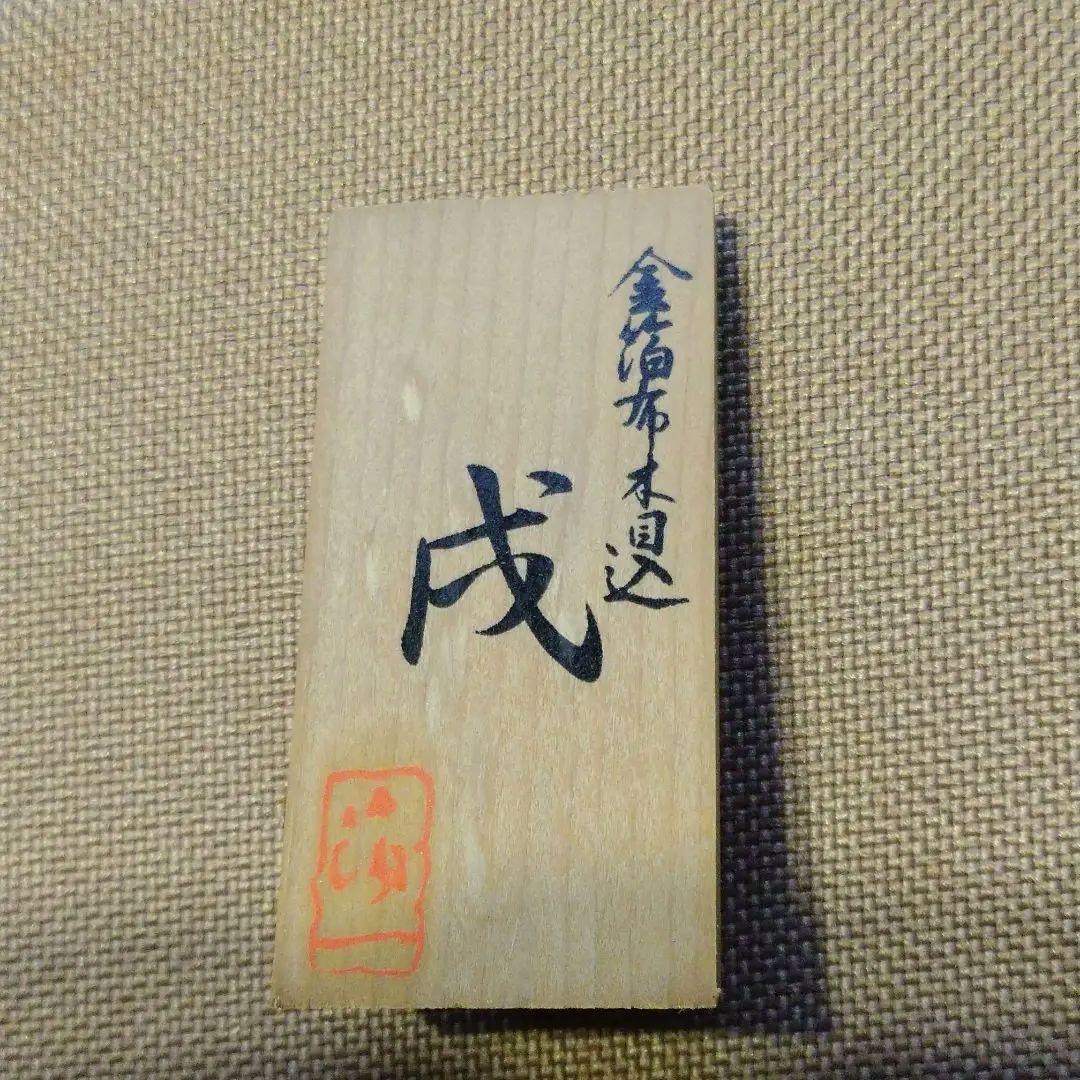 金箔布木目込
戌